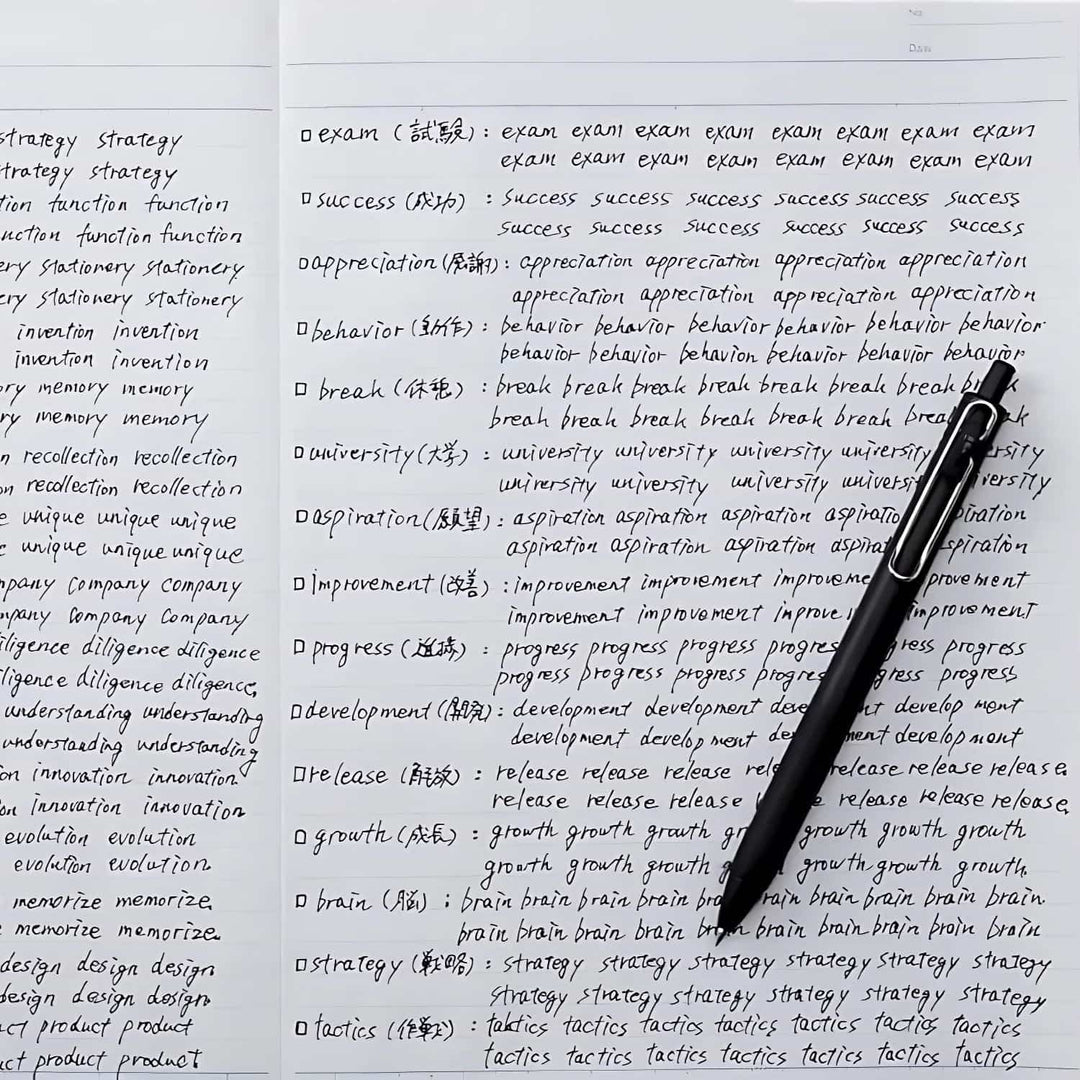 strategy strategy
strategy strategy
function function
function function
stationery stationery
stationery stationery
invention invention
invention invention
memory memory
memory memory
recollection recollection
recollection recollection
unique unique unique
unique unique unique
company company
company company
diligence diligence
diligence diligence
understanding understanding
understanding understanding
innovation innovation
innovation innovation
evolution evolution
evolution evolution
memorize memorize
memorize memorize
design design design
design design design
product product
product product
No.
Date
□ exam (試験) : exam exam exam exam exam exam exam exam
exam exam exam exam exam exam exam exam
□ success (成功) : success success success success success success
success success success success success success
□ appreciation (感謝) : appreciation appreciation appreciation appreciation
appreciation appreciation appreciation appreciation
□ behavior (動作) : behavior behavior behavior behavior behavior behavior
behavior behavior behavion behavior behavior behavior
□ break (休憩) : break break break break break break break
break break break break break break
□ university (大学) : university university university university
university university university
□ aspiration (願望) : aspiration aspiration aspiration
aspiration aspiration aspiration
□ improvement (改善) : improvement improvement
improvement improvement improvement
□ progress (進捗) : progress progress progress progress
progress progress progress progress
□ development (開発) : development development develop ment
development develop ment develop ment
□ release (解放) : release release release release release release
release release release release release release
□ growth (成長) : growth growth growth growth growth growth
growth growth growth growth growth growth
□ brain (脳) ; brain brain brain brain brain brain brain brain
brain brain brain brain brain brain brain brain brain
□ strategy (戦略) : strategy strategy strategy strategy strategy strategy
strategy strategy strategy strategy strategy strategy
□ tactics (作戦) : tactics tactics tactics tactics tactics tactics tactics
tactics tactics tactics tactics tactics tactics tactics